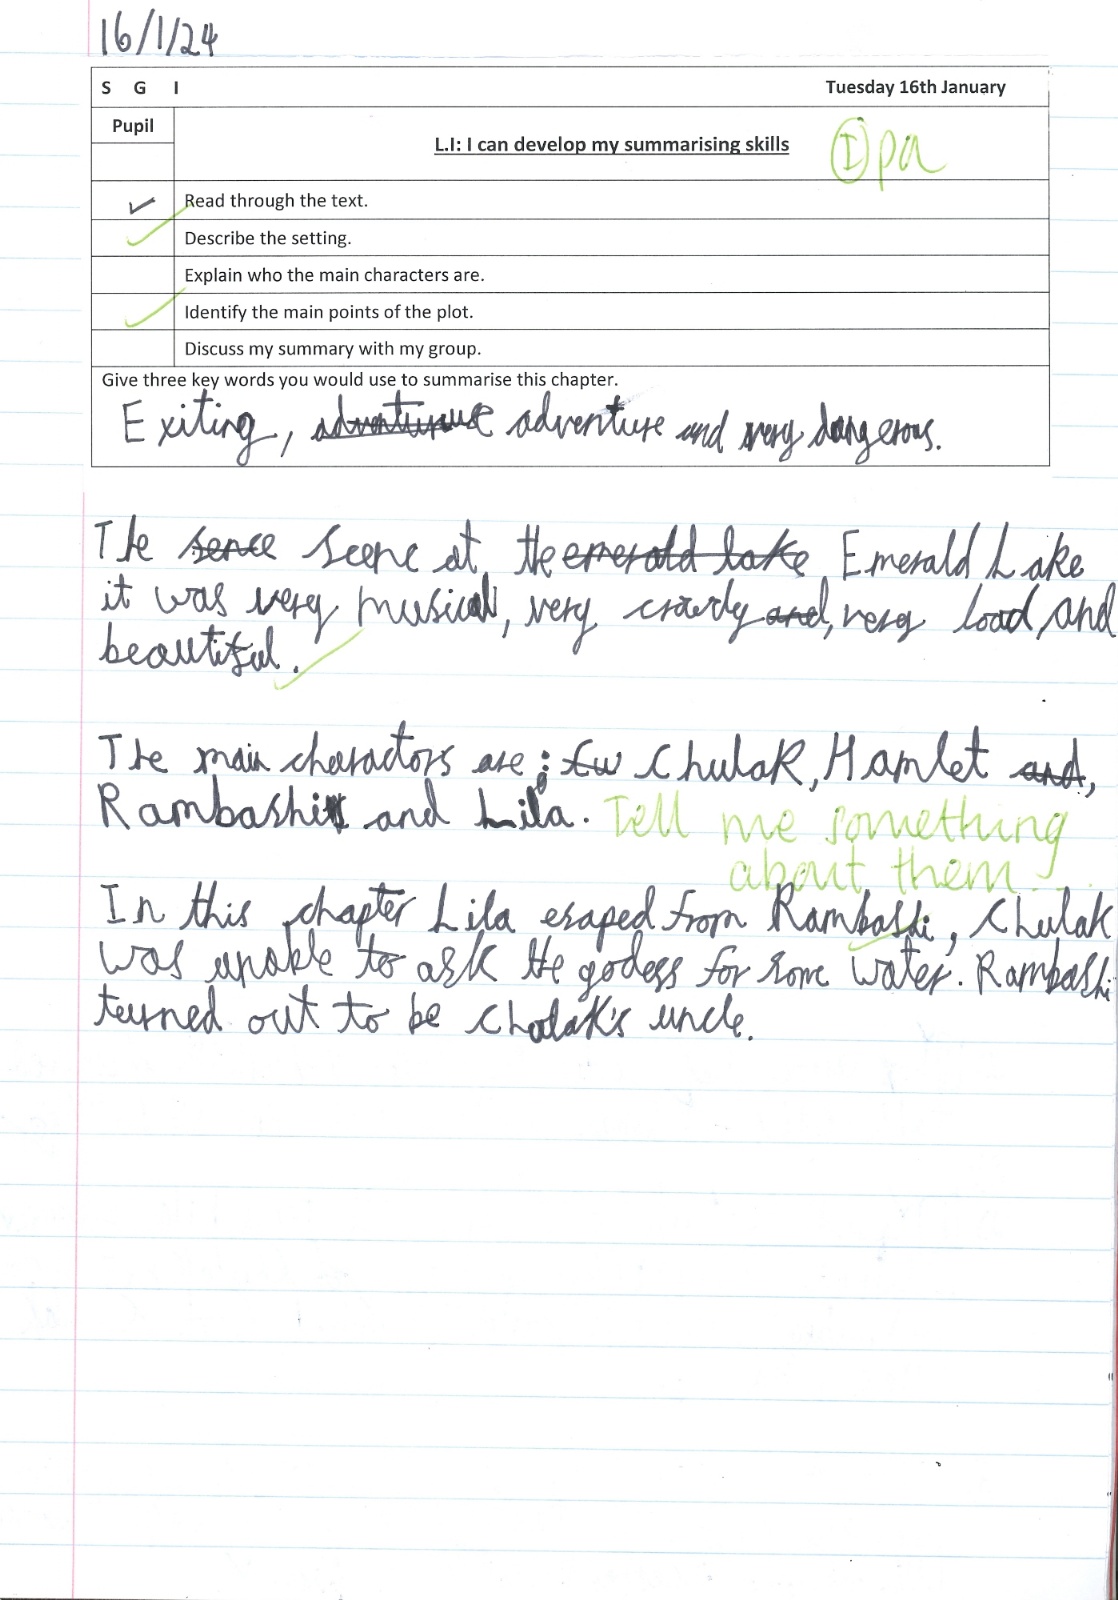 16/1/24
S G I Tuesday 16th January
Pupil
L.I: I can develop my summarising skills
I pa
Read through the text.
Describe the setting.
Explain who the main characters are.
Identify the main points of the plot.
Discuss my summary with my group.
Give three key words you would use to summarise this chapter.
Exiting, adventure and very dangerous.
The sence Scene at the emerald lake Emerald Lake
it was very musical, very crowdy and, very load, and
beautiful.
The main charactors are: Chulak, Hamlet and,
Rambashi and Lila. Tell me something
about them...
In this chapter Lila esaped from Rambashi, Chulak
was unable to ask the godess for some water. Rambashi
turned out to be Chulak's uncle.